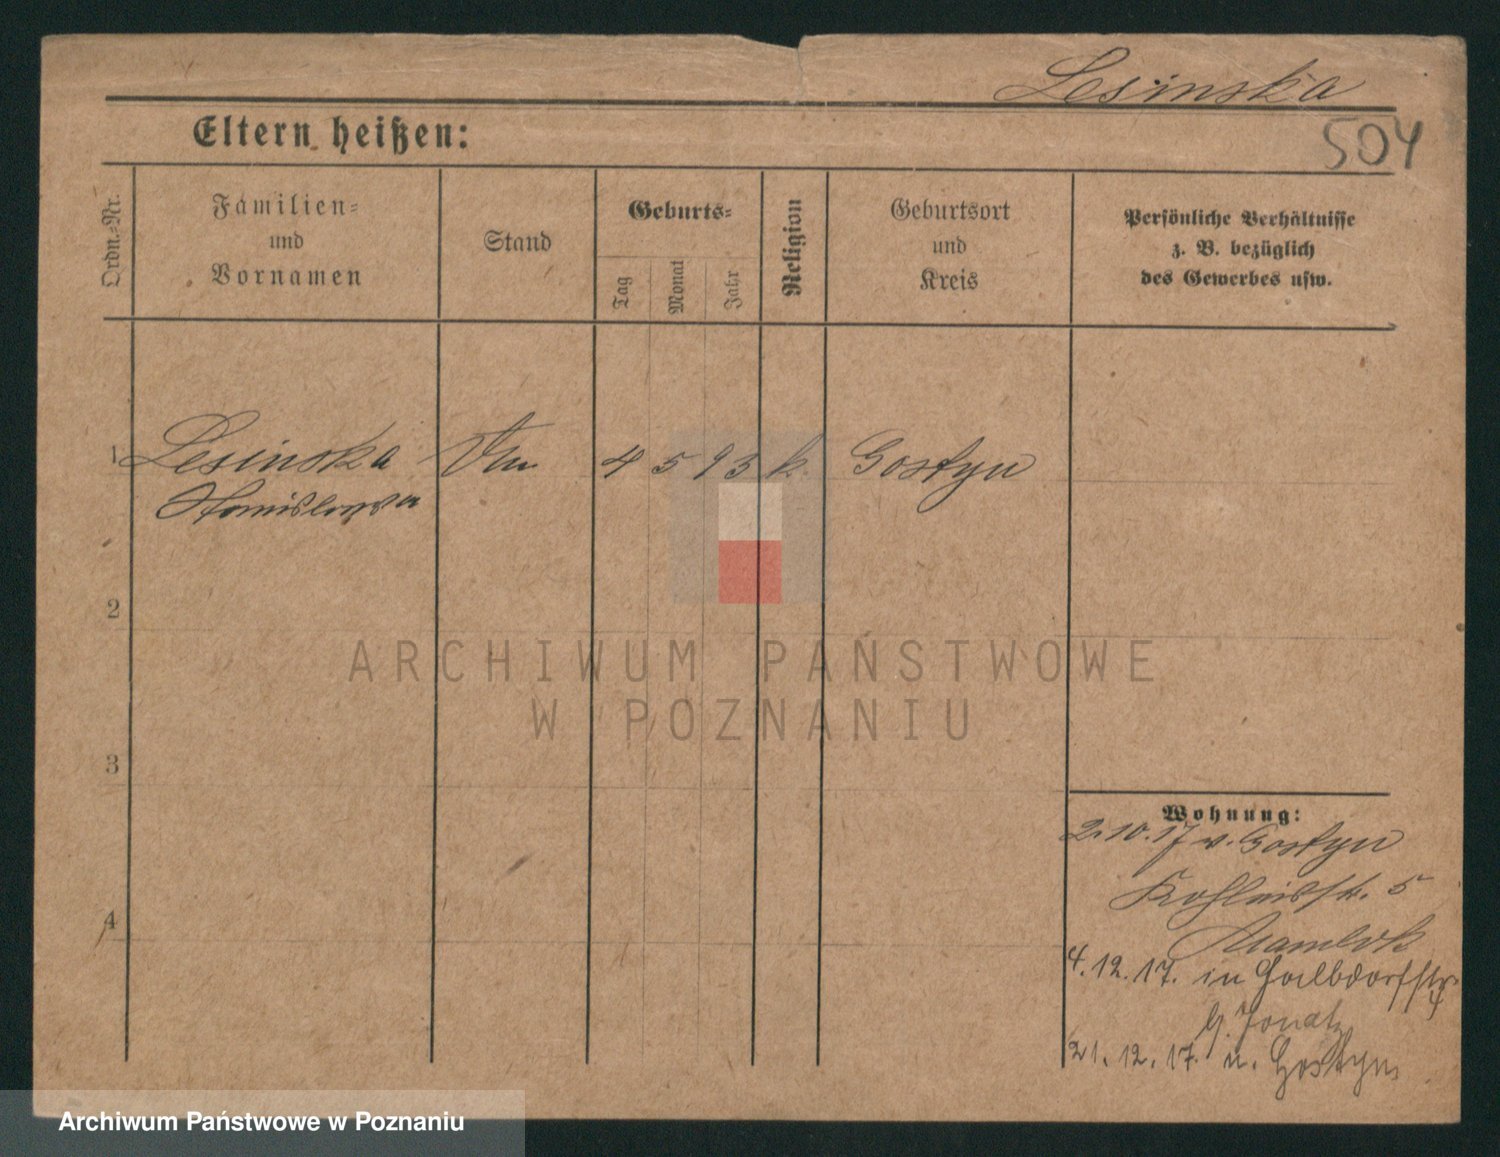 Lesinska
504
Eltern heißen:
Ordn.-Nr.
Familien-
und
Vornamen
Stand
Geburts-
Tag
Monat
Jahr
Religion
Geburtsort
und
Kreis
Persönliche Verhältnisse
z. B. bezüglich
des Gewerbes usw.
1 Lesinska 4 5 93 k. Gostyn
Stanislawa
2
3
4
Wohnung:
2.10.17 v. Gostyn
5
4.12.17. in
21.12.17. n. Gostyn
ARCHIWUM PAŃSTWOWE
W POZNANIU
Archiwum Państwowe w Poznaniu